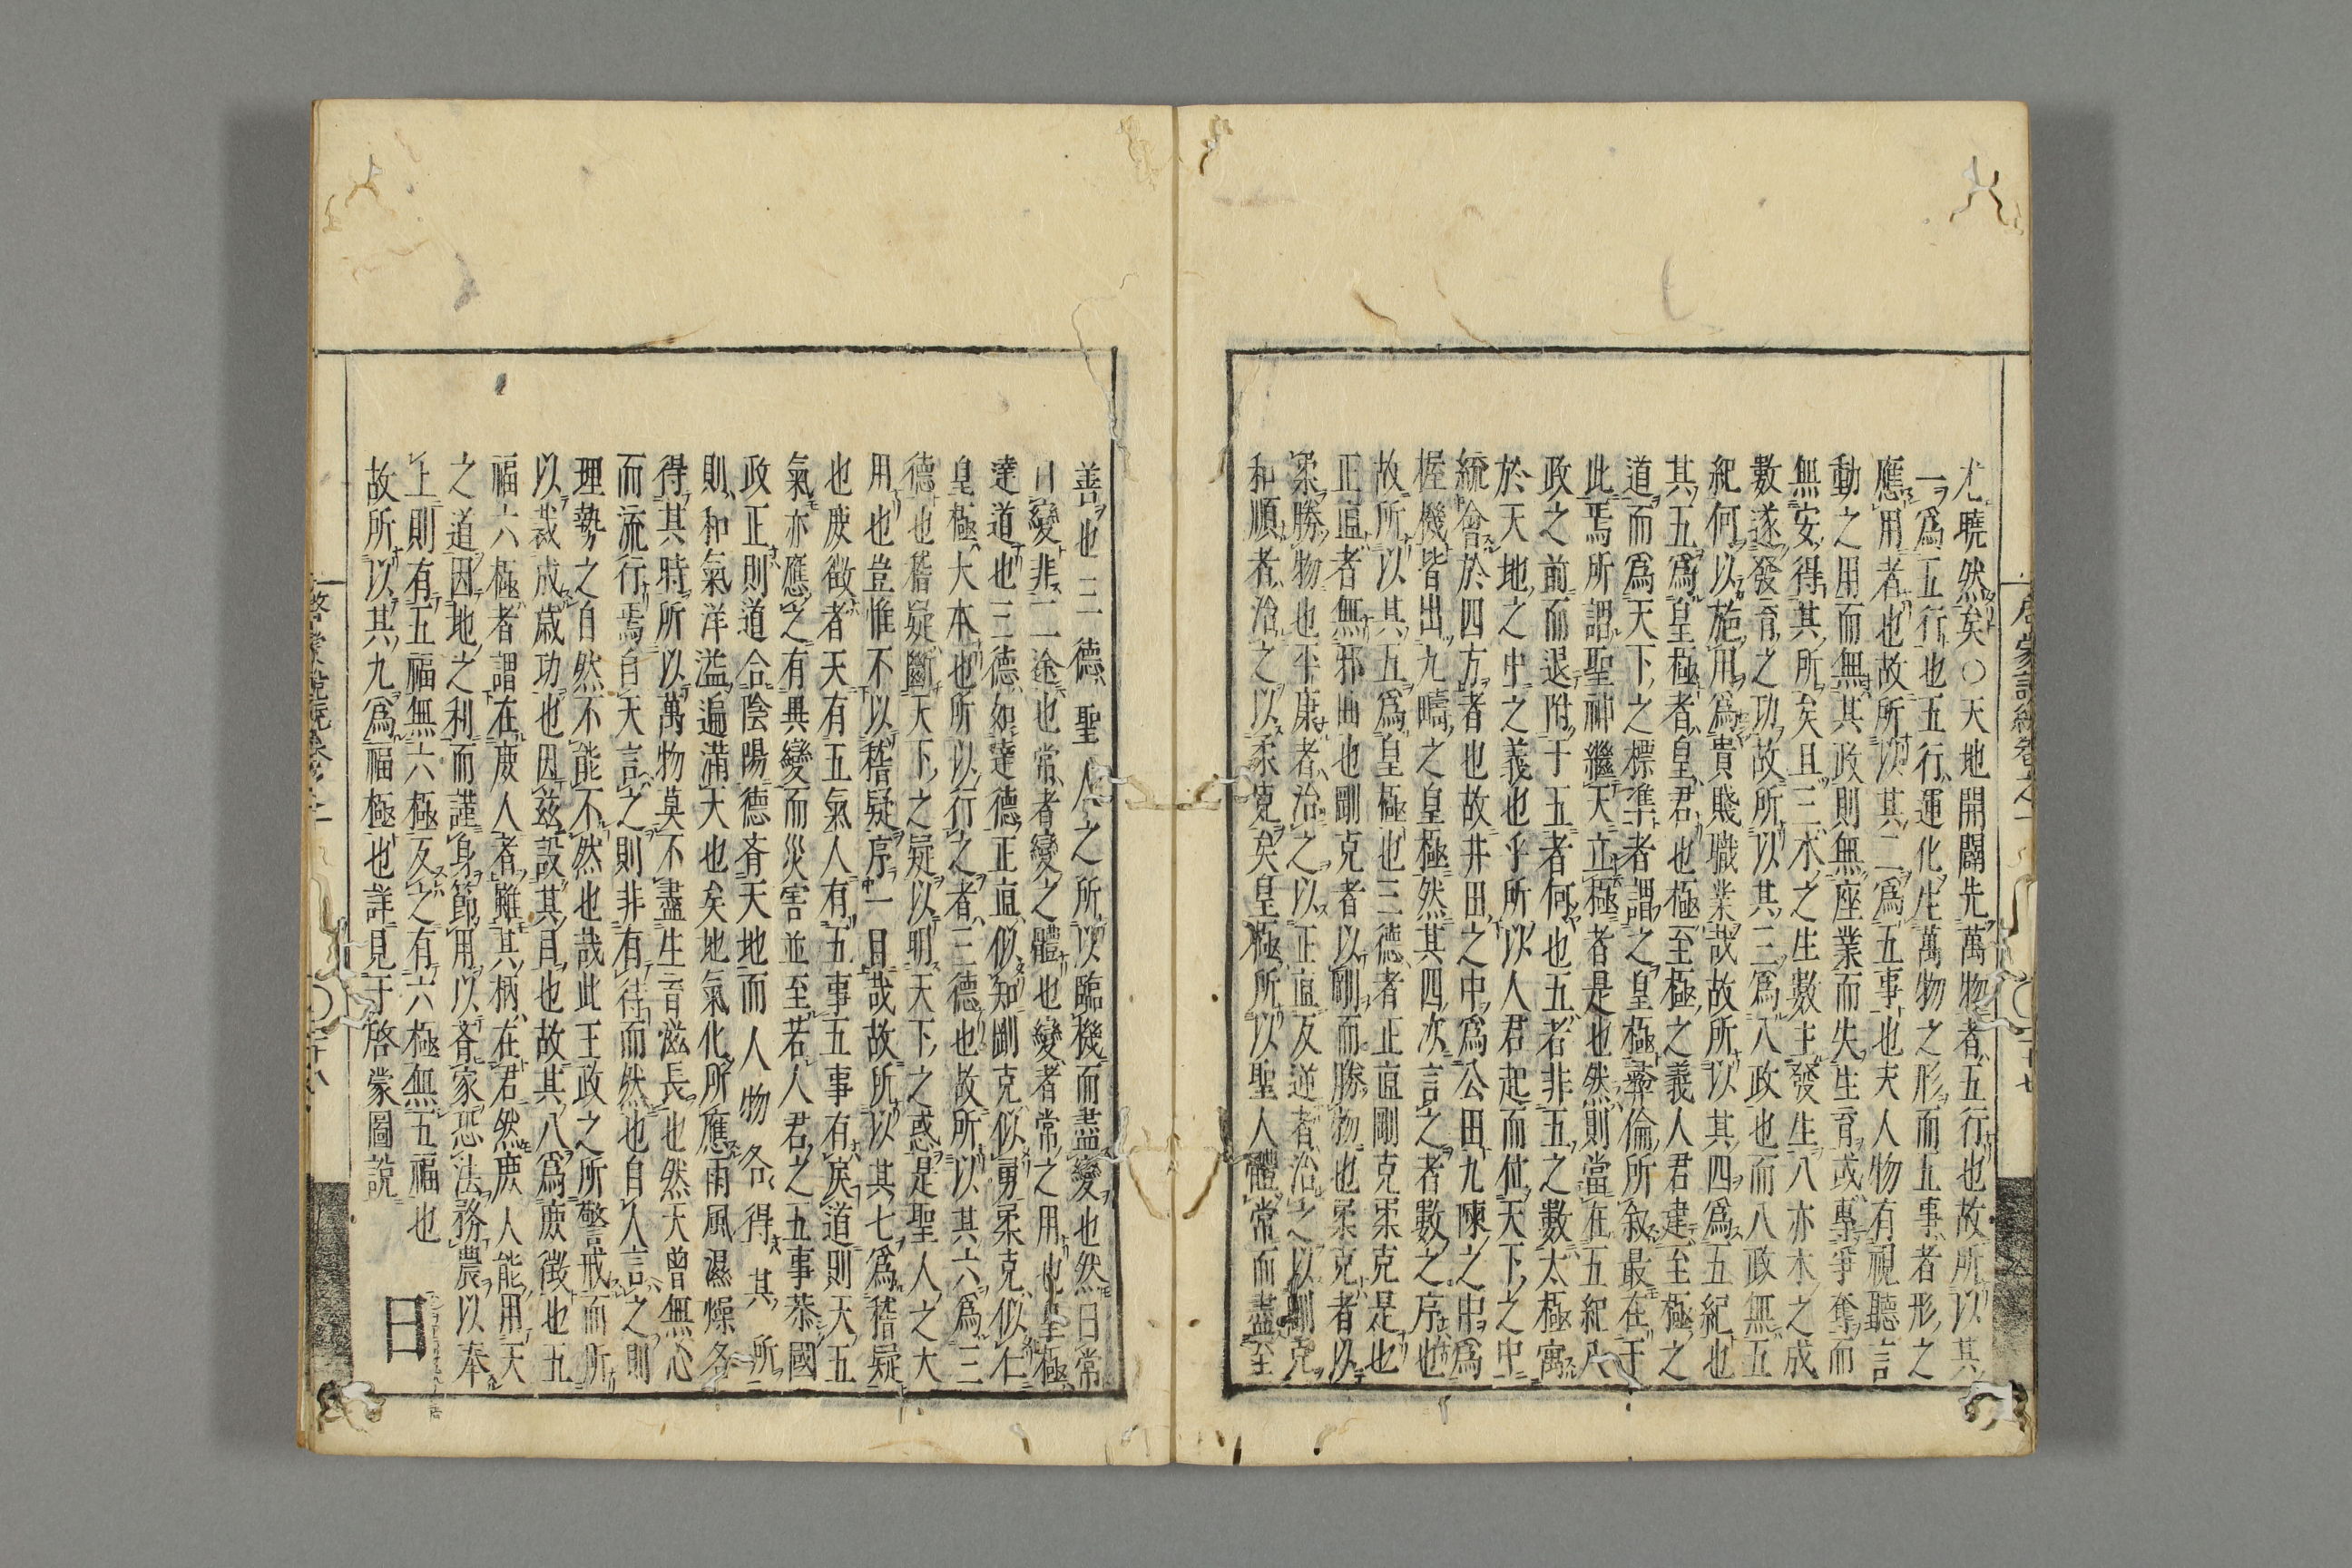 尤曉然矣○天地開闢先萬物者五行也故所以其
一爲五行也五行運化生萬物之形而五事者形之
應用者也故所以其二爲五事也夫人物有視聽言
動之用而無其政則無座業而失生育或專爭奪而
無安得其所矣且三木之生數主發生八亦木之成
數遂發育之功故所以其三爲八政也而八政無五
紀何以施用爲貴賤職業哉故所以其四爲五紀也
其五爲皇極者皇君也極至極之義人君建至極之
道而爲天下之標準者謂之皇極彝倫所敘最在于
此焉所謂聖神繼天立極者是也然則當在五紀八
政之前而退附于五者何也五者非五之數太極寓
於天地之中之義也乎所以人君起而位天下之中
統會於四方者也故井田之中爲公田九疇之中爲
握機皆出九疇之皇極然其四次言之者數之序也
故所以其五爲皇極也三德者正直剛克柔克是也
正直者無邪曲也剛克者以剛而勝物也柔克者以
柔勝物也平康者治之以正直反逆者治之以剛克
和順者治之以柔克矣皇極所以聖人體常而盡至
啓蒙説統卷之一 ○二十七
善也三德聖人之所以臨機而盡變也然曰常
曰變非二途也常者變之體也變者常之用也皇極
達道也三德如達德正直似知剛克似勇柔克似仁
皇極大本也所以行之者三德也故所以其六爲三
德也稽疑斷天下之疑以明天下之惑是聖人之大
用也豈惟不以稽疑序一目哉故所以其七爲稽疑
也庶徵者天有五氣人有五事五事有戾道則天五
氣亦應之有異變而災害並至若人君之五事恭國
政正則道合陰陽德齊天地而人物各得其所
則和氣洋溢遍滿天也矣地氣化所應雨風濕燥各
得其時所以萬物莫不盡生育滋長也然天曾無心
而流行焉自天言之則非有待而然也自人言之則
理勢之自然不能不然也哉此王政之所警戒而所
以裁成歲功也因茲設其目也故其八爲庶徵也五
福六極者謂在庶人者雖其柄在君然庶人能用天
之道因地之利而謹身節用以齊家恐法務農以奉
上則有五福無六極反之有六極無五福也
故所以其九爲福極也詳見于啓蒙圖說
啓蒙説統卷之一 ○二十八